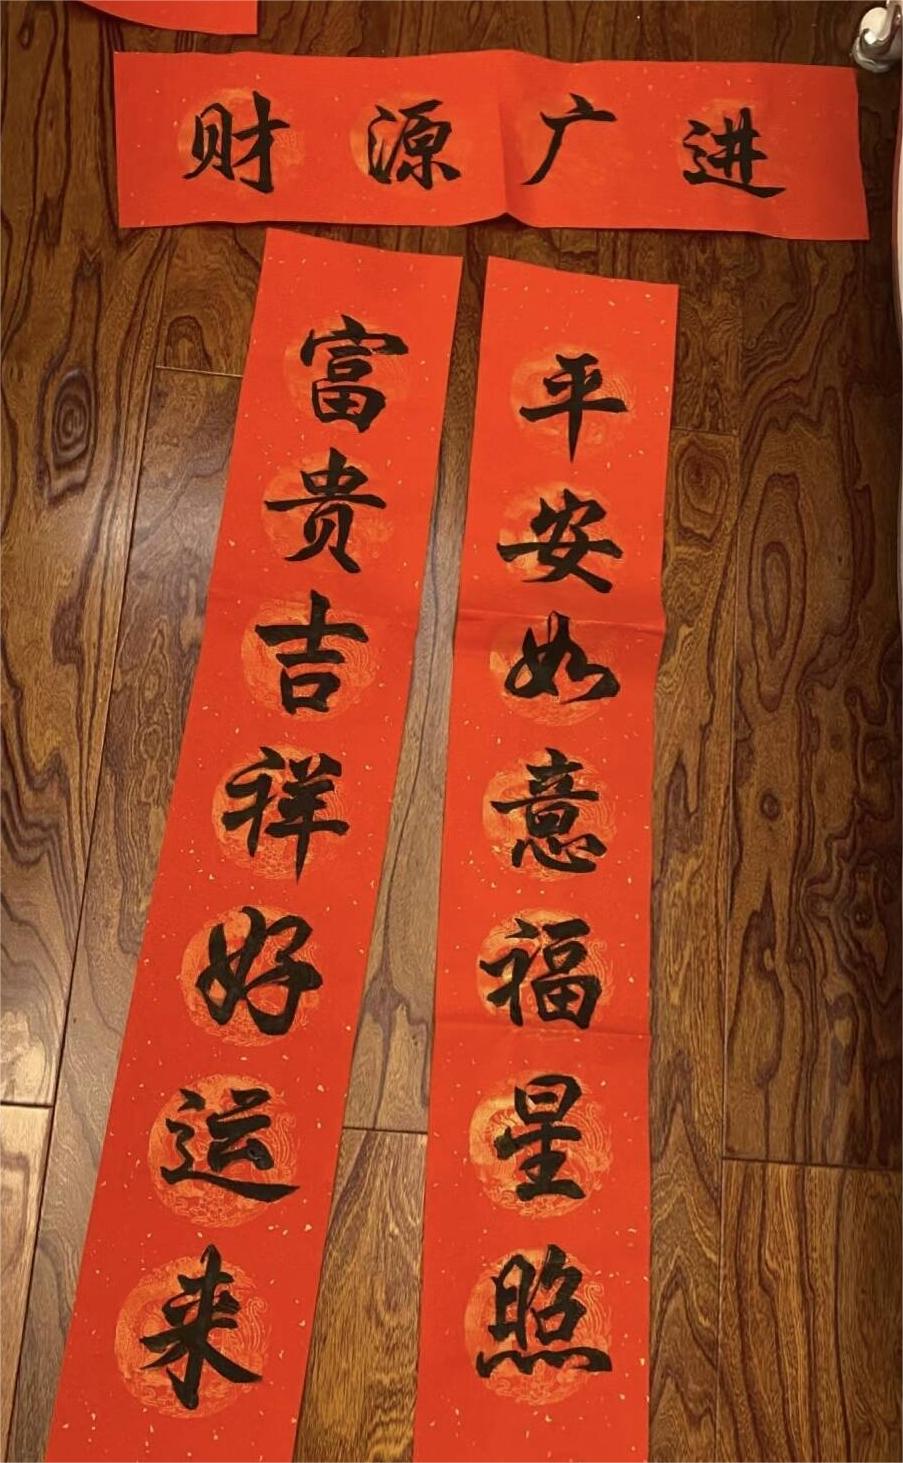 财源广进
富贵吉祥好运来
平安如意福星照